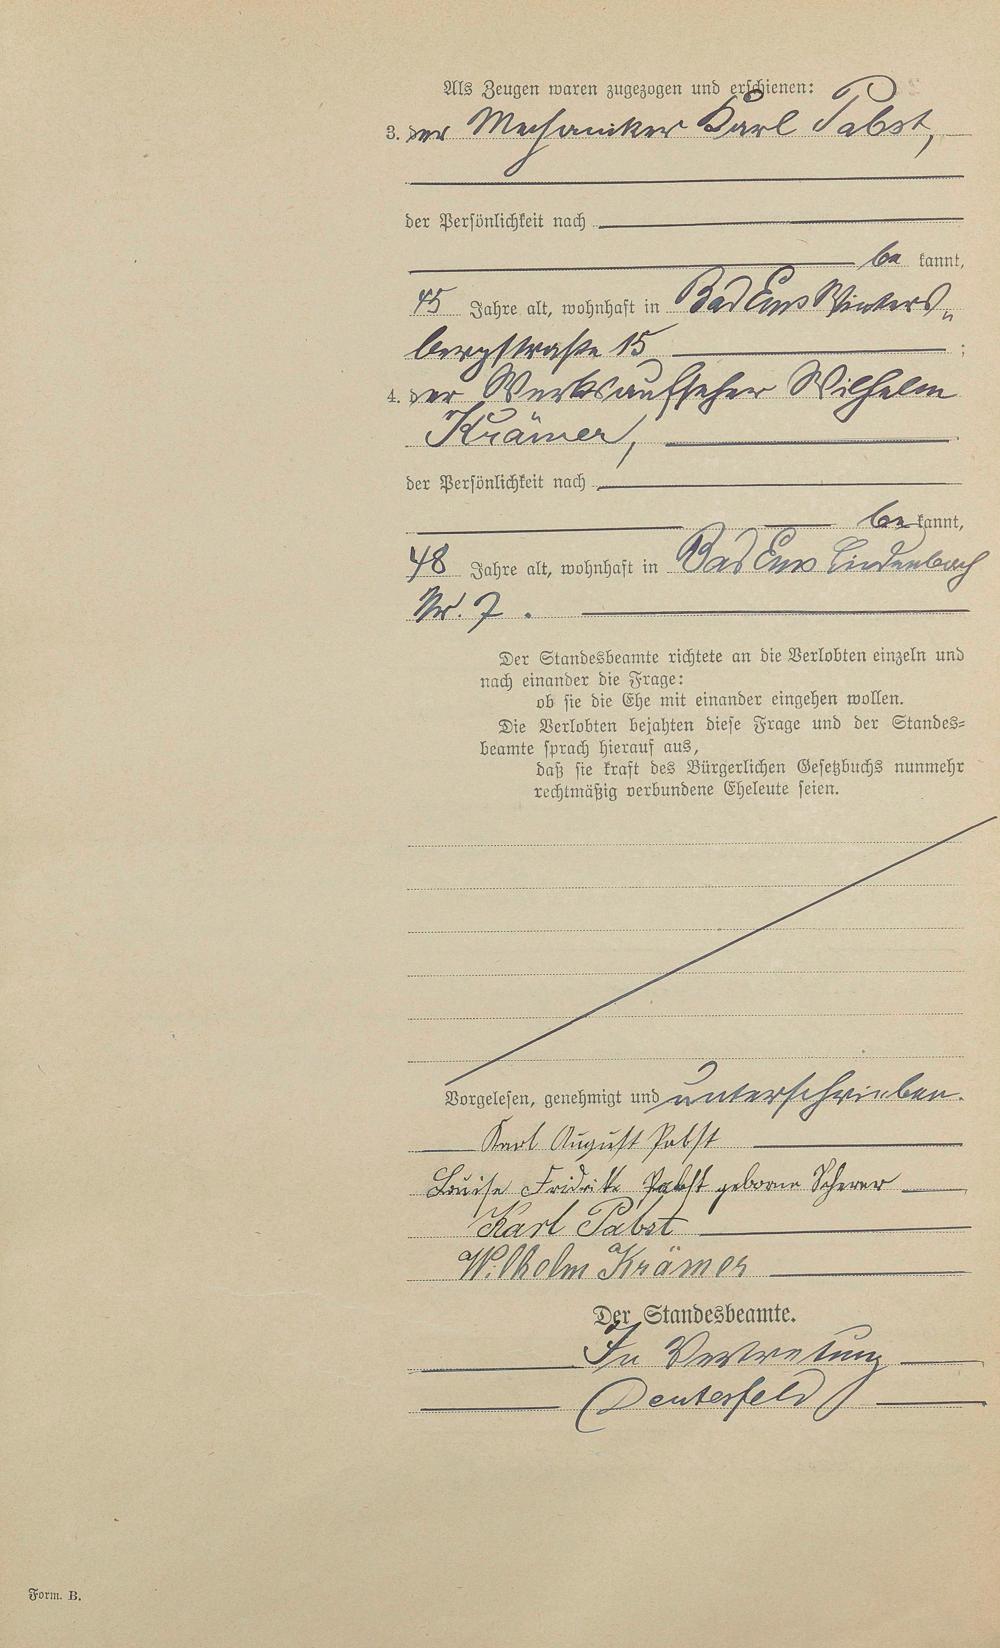 Als Zeugen waren zugezogen und erschienen:
3. der Mechaniker Karl Pabst,
der Persönlichkeit nach
be kannt,
45 Jahre alt, wohnhaft in Bad Ems Winters„
bergstraße 15 ;
4. der Werksaufseher Wilhelm
Krämer,
der Persönlichkeit nach
be kannt,
48 Jahre alt, wohnhaft in Bad Ems Lindenbach
Nr. 7.
Der Standesbeamte richtete an die Verlobten einzeln und
nach einander die Frage:
ob sie die Ehe mit einander eingehen wollen.
Die Verlobten bejahten diese Frage und der Standes=
beamte sprach hierauf aus,
daß sie kraft des Bürgerlichen Gesetzbuchs nunmehr
rechtmäßig verbundene Eheleute seien.
Vorgelesen, genehmigt und unterschrieben.
Karl August Pabst
Louise Pabst geborne Scherer
Karl Pabst
Wilhelm Krämer
Der Standesbeamte.
In Vertretung
Form. B.